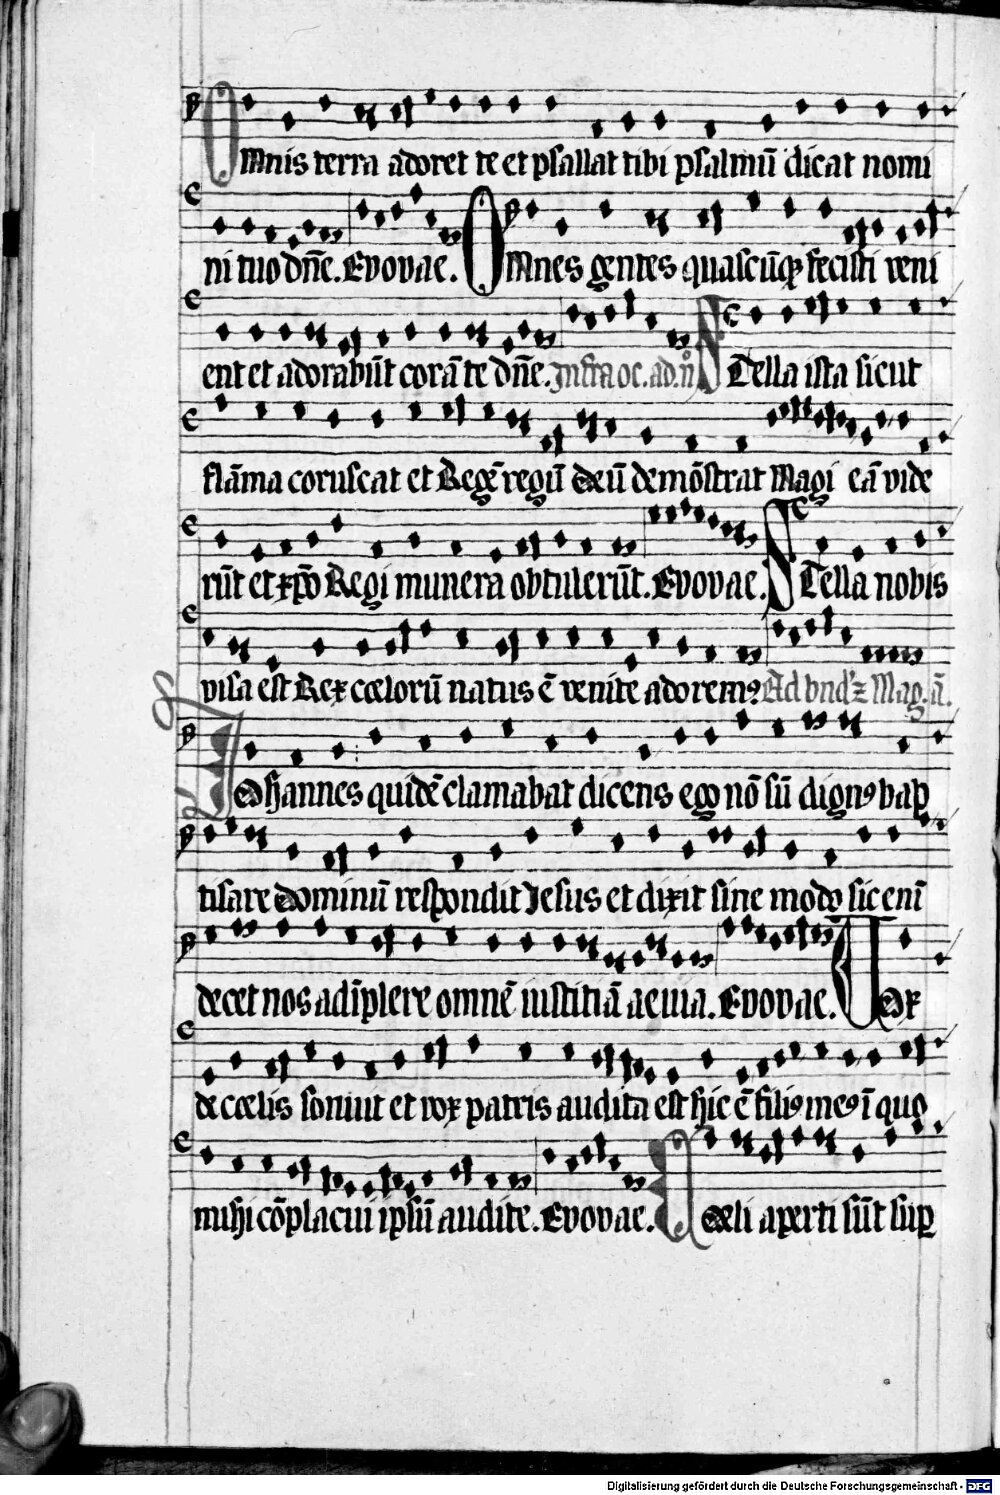 Omnis terra adoret te et psallat tibi psalmū dicat nomi
ni tuo dn̄e. Evovae. Omnes gentes quascūqꝫ fecisti veni
ent et adorabūt corā te dn̄e. Infra oc. ad n̄ Stella ista sicut
flām̄a coruscat et Regē regū deū demōstrat Magi eā vide
rūt et xp̄o Regi munera obtulerūt. Evovae. Stella nobis
visa est Rex cœlorū natus ē venite adoremꝯ Ad bnd'z Mag. ā.
Johannes quidē clamabat dicens ego nō sū dignꝯ bap
tisare dominū respondit Jesus et dixit sine modo sic enī
decet nos adīplere omnē iustitiā aevia. Evovae. Vox
de cœlis soniut et vox patris audita est hic ē filiꝯ meꝯ ī quo
mihi cōplacui ipsū audite. Evovae. Cœli aperti sūt suꝑ
Digitalisierung gefördert durch die Deutsche Forschungsgemeinschaft - DFG